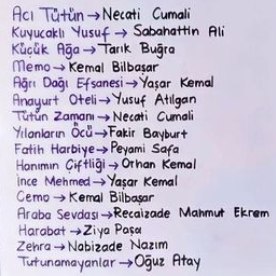 Acı Tütün → Necati Cumali
Kuyucaklı Yusuf → Sabahattin Ali
Küçük Ağa → Tarık Buğra
Memo → Kemal Bilbaşar
Ağrı Dağı Efsanesi → Yaşar Kemal
Anayurt Oteli → Yusuf Atılgan
Tütün Zamanı → Necati Cumali
Yılanların Öcü → Fakir Bayburt
Fatih Harbiye → Peyami Safa
Hanımın Çiftliği → Orhan Kemal
İnce Mehmed → Yaşar Kemal
Cemo → Kemal Bilbaşar
Araba Sevdası → Recaizade Mahmut Ekrem
Harabat → Ziya Paşa
Zehra → Nabizade Nazım
Tutunamayanlar → Oğuz Atay